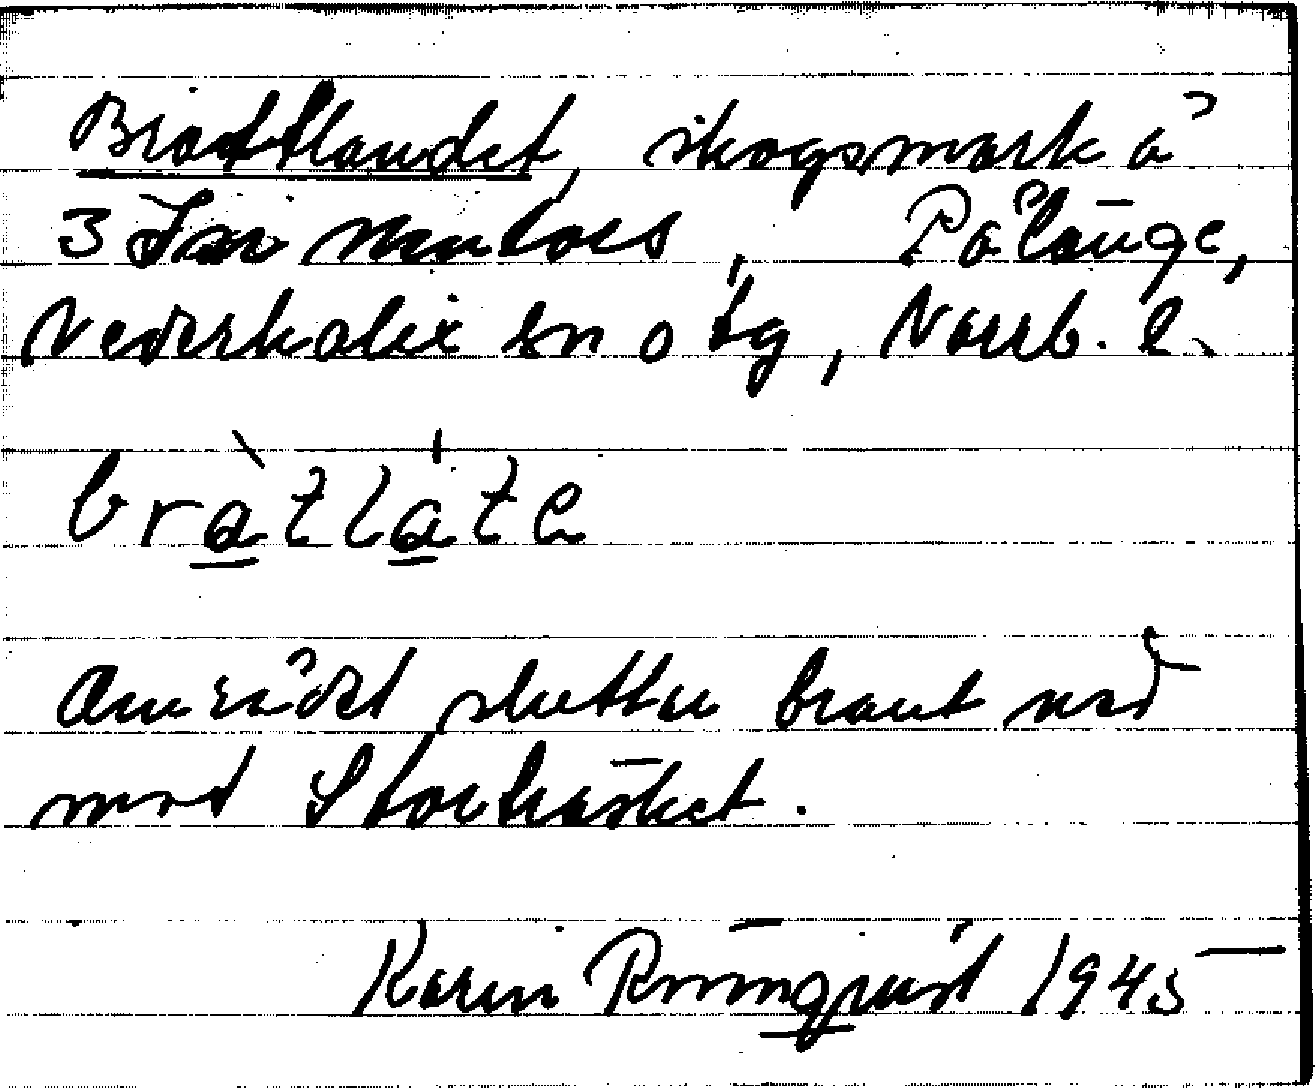 Brattlandet, skogsmark å
3 , Pålänge,
Nederkalix sn o tg, Norrb. l.
bràtláte
Området sluttar brant ned
mot Storträsket.
Karin Rönnqvist 1945